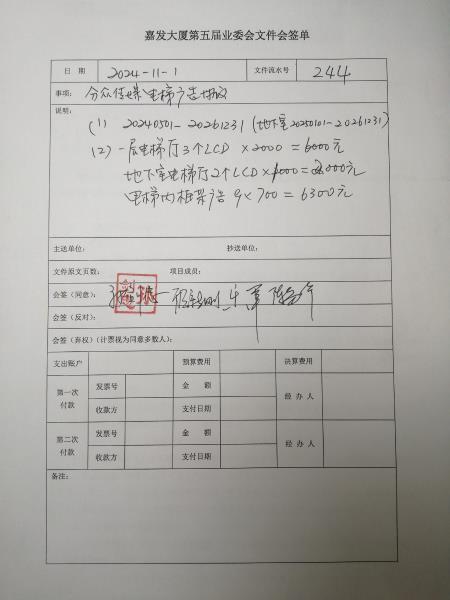 嘉发大厦第五届业委会文件会签单
日 期 2024-11-1 文件流水号 244
事项： 分众传媒电梯广告协议
说明：
(1) 20240501-20261231 (地下室20250101-20261231)
(2) 一层电梯厅3个LCD×2000=6000元
地下室电梯厅2个LCD×1000=2000元
电梯内框架广告 9×700=6300元
主送单位： 抄送单位：
文件原文页数： 项目成员：
会签（同意）：
会签（反对）：
会签（弃权）（计票视为同意多数人）：
支出账户 预算费用 决算费用
第一次付款 发票号 金 额 经 办 人
收款方 支付日期
第二次付款 发票号 金 额 经 办 人
收款方 支付日期
备注：